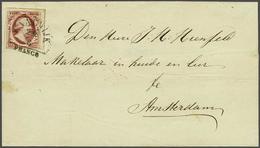 FRANCO
Den Heer J. H. Nienfeld
Makelaar in huiden en leer
te
Amsterdam